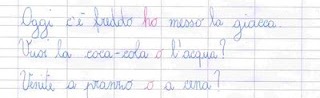 Oggi c'è freddo ho messo la giacca.
Vuoi la coca-cola o l'acqua?
Venite a pranzo o a cena?